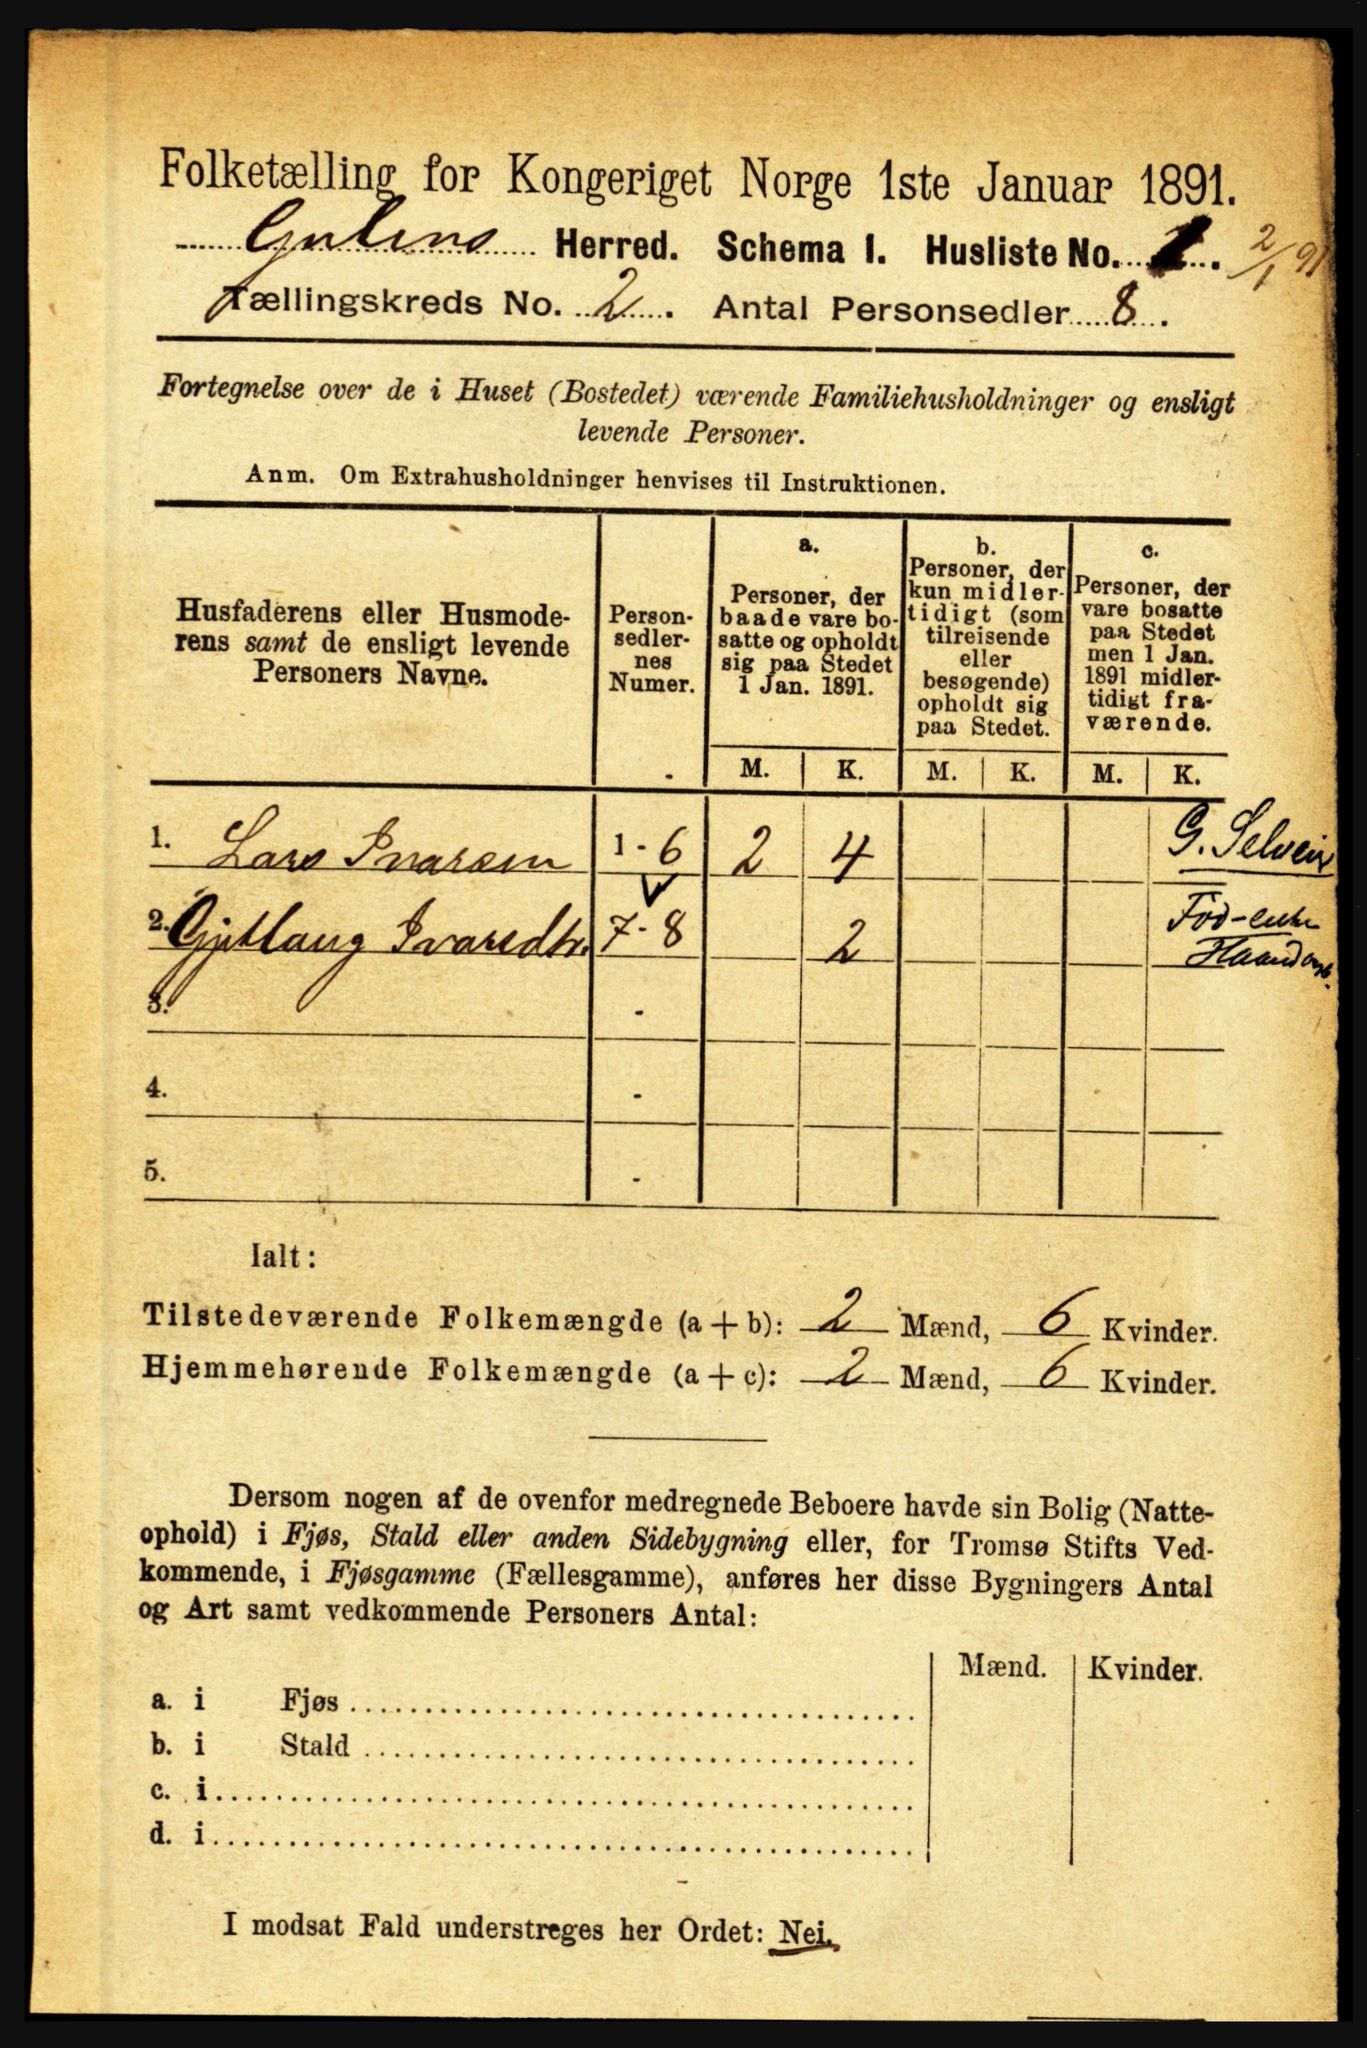 Folketælling for Kongeriget Norge 1ste Januar 1891.
Gulens Herred. Schema I. Husliste No. 1. 2/1 91
Tællingskreds No. 2. Antal Personsedler 8.
Fortegnelse over de i Huset (Bostedet) værende Familiehusholdninger og ensligt
levende Personer.
Anm. Om Extrahusholdninger henvises til Instruktionen.
Husfaderens eller Husmode-
rens samt de ensligt levende
Personers Navne.
Person-
sedler-
nes
Numer.
a.
Personer, der
baade vare bo-
satte og opholdt
sig paa Stedet
1 Jan. 1891.
b.
Personer, der
kun midler-
tidigt (som
tilreisende
eller
besøgende)
opholdt sig
paa Stedet.
c.
Personer, der
vare bosatte
paa Stedet
men 1 Jan.
1891 midler-
tidigt fra-
værende.
M. K. M. K. M. K.
1. Lars Ivarsen 1 - 6 2 4 G. Selveier
2. Gjutlaug Ivarsdtr. 7 - 8 2 Fod-enke
3. -
4. -
5. -
Ialt:
Tilstedeværende Folkemængde (a + b): 2 Mænd, 6 Kvinder.
Hjemmehørende Folkemængde (a + c): 2 Mænd, 6 Kvinder.
Dersom nogen af de ovenfor medregnede Beboere havde sin Bolig (Natte-
ophold) i Fjøs, Stald eller anden Sidebygning eller, for Tromsø Stifts Ved-
kommende, i Fjøsgamme (Fællesgamme), anføres her disse Bygningers Antal
og Art samt vedkommende Personers Antal:
Mænd. Kvinder.
a. i Fjøs
b. i Stald
c. i
d. i
I modsat Fald understreges her Ordet: Nei.